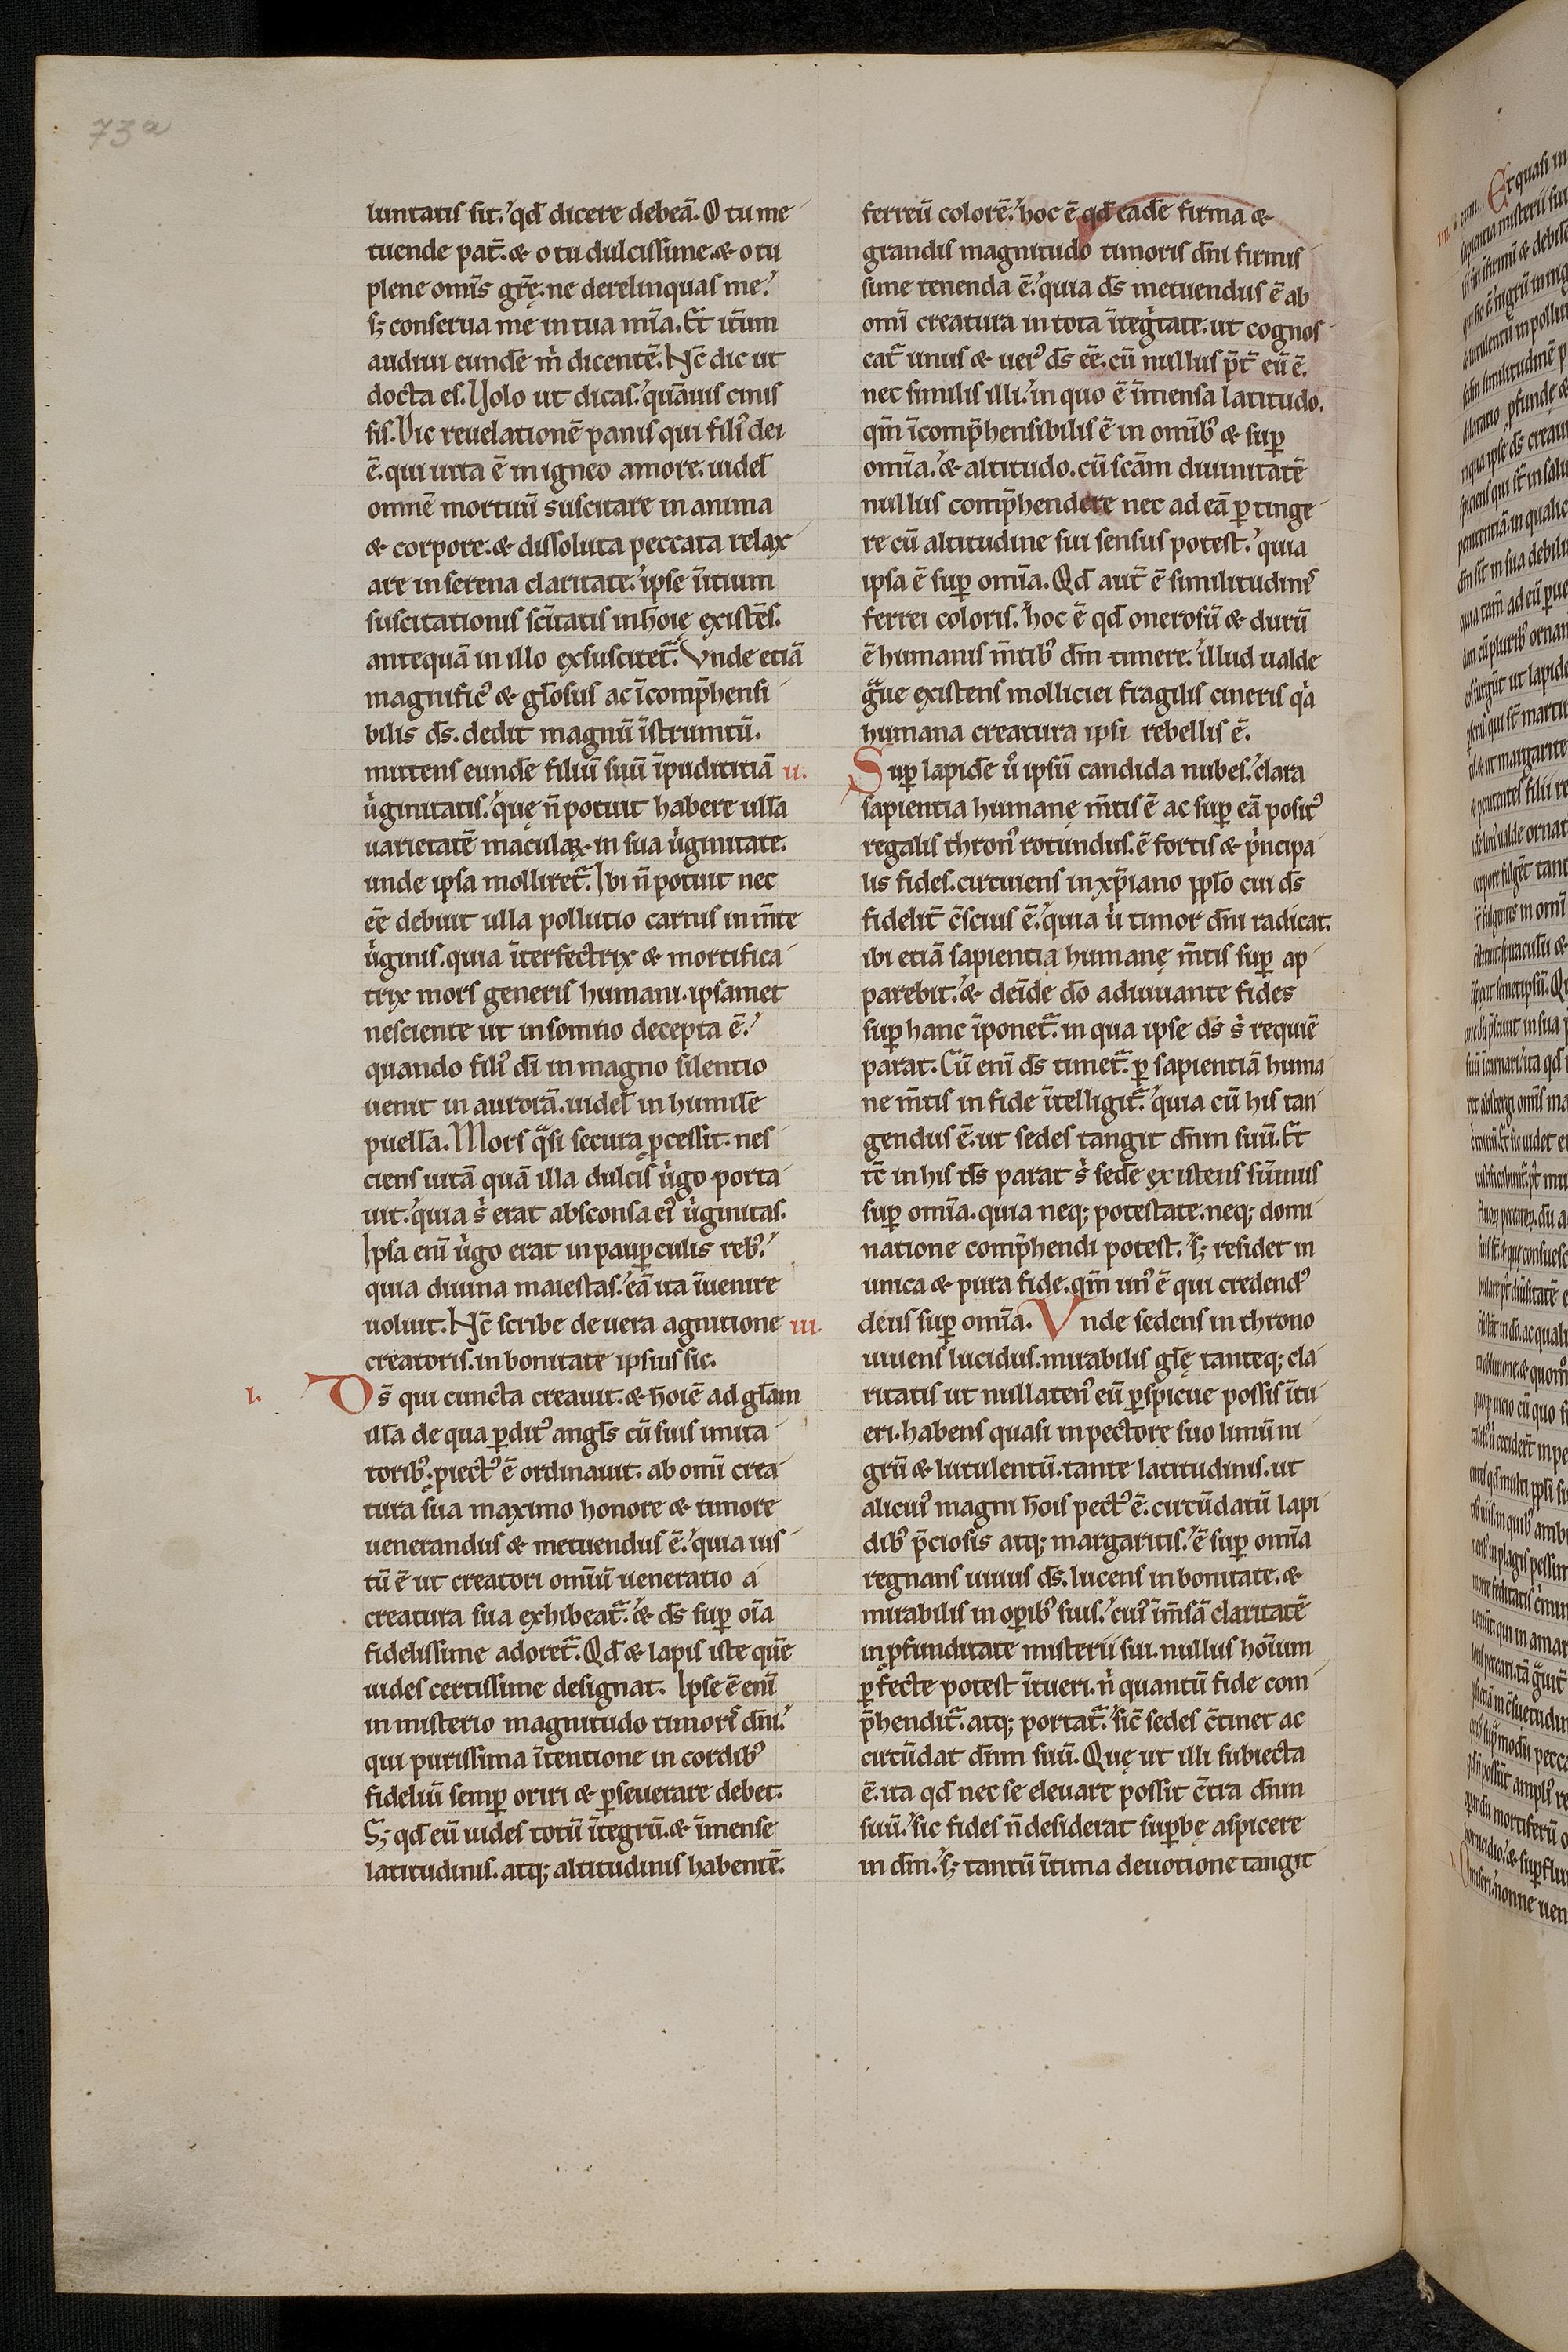 73a
luntatis sit. qd̄ dicere debeā. O tu me
tuende pat̄. & o tu dulcissime. & o tu
plene om̄s gr̄ę. ne derelinquas me.
sꝫ conserua me in tua mīa. Et itūm
audiui eundē m̄ dicentē. Nc̄ dic ut
docta es. Uolo ut dicas. quāuis cinis
sis. Dic reuelationē panis qui fili᾽ dei
ē. qui uita ē in igneo amore. uidel̄
omnē mortuū suscitare in anima
& corpore. & dissoluta peccata relax
are in serena claritate. ipse īitium
suscitationis scītatis in hōie existēs.
antequā in illo exsuscitet᷑. Vnde etiā
magnific᾽ & glōsus ac īcomp̄hensi
bilis ds̄. dedit magnū īstrumtū.
mittens eundē filiū suū īpudicitiā
u̇ginitatis. quę n̄ potuit habere ull̄a
uarietatē maculaꝝ in sua u̇ginitate.
unde ipsa molliret᷑. Ibi n̄ potuit nec
eē debuit ulla pollutio carnis in m̄te
u̇ginis. quia īterfectrix & mortifica
trix mors generis humani. ipsamet
nesciente ut in somno decepta ē.
quando fili᾽ dī in magno silentio
uenit in aurorā. uidel̄ in humil̄e
puell̄a. Mors q̄si secura ꝓcessit. nes
ciens uitā quā illa dulcis u̇go porta
uit. quia s̄ erat absconsa ei᾽ u̇ginitas.
Ipsa enī u̇go erat in pauꝑculis reb᾽.
quia diuina maiestas. eā ita īuenire
uoluit. Nc̄ scribe de uera agnitione
creatoris. in bonitate ipsius sic.
i. Ds̄ qui cuncta creauit. & hōiē ad gl̄am
ill̄a de qua ꝑdit᾽ angl̄s cū suis imita
torib᾽. ꝓiect᾽ ē ordinauit. ab omī crea
tura sua maximo honore & timore
uenerandus & metuendus ē. quia ius
tū ē ut creatori omīū ueneratio a
creatura sua exhibeat᷑. & ds̄ suꝑ oīa
fidelissime adoret᷑. Qd̄ & lapis iste quē
uides certissime designat. Ipse ē enī
in misterio magnitudo timor᾽ dn̄i.
qui purissima ītentione in cordib᾽
fideliū semꝑ oriri & ꝑseuerare debet.
Sꝫ qd̄ eū uides totū ītegrū. & īmense
latitudinis. atqꝫ altitudinis habentē.
ferreū colorē. hoc ē qd̄ eadē firma &
grandis magnitudo timoris dn̄i firmis
sime tenenda ē. quia ds̄ metuendus ē ab
omī creatura in tota ītegˡtate. ut cognos
cat᷑ unus & uer᾽ ds̄ eē. cū nullus p̄t̄ eū ē.
nec similis illi. in quo ē īmensa latitudo.
qm̄ īcomp̄hensibilis ē in omīb᾽ & suꝑ
omīa. & altitudo. cū scām diuinitatē
nullus comp̄hendere nec ad eā ꝑtinge
re cū altitudine sui sensus potest. quia
ipsa ē suꝑ omīa. Qd̄ aut̄ ē similitudinis
ferrei coloris. hoc ē qd̄ onerosū & durū
ē humanis m̄tib᾽ dm̄ timere. illud ualde
gᵃue existens molliciei fragilis cineris qᵃ
humana creatura ipsi rebellis ē.
ii. Suꝑ lapidē u᷒ ipsū candida nubes. clara
sapientia humanę m̄tis ē ac suꝑ eā posit᾽
regalis thron᾽ rotundus. ē fortis & pˡncipa
lis fides. circuiens in xp̄iano ppl̄o cui ds̄
fidelit̄ c̄scius ē. quia u̇ timor dn̄i radicat.
ibi etiā sapientia humanę m̄tis suꝑ ap
parebit. & deīde dō adiuuante fides
suꝑ hanc īponet᷑. in qua ipse ds̄ s̄ requiē
parat. Cū enī ds̄ timet᷑. ꝑ sapientiā huma
ne m̄tis in fide ītelligit᷑. quia cū his tan
gendus ē. ut sedes tangit dn̄m suū. Et
tc̄ in his ds̄ parat s̄ sedē existens sūmus
suꝑ omīa. quia neqꝫ potestate. neqꝫ domi
natione comp̄hendi potest. sꝫ residet in
unica & pura fide. qm̄ un᾽ ē qui credend᾽
iii. deus suꝑ omīa. Vnde sedens in throno
uiuens lucidus. mirabilis gl̄ę tanteqꝫ cla
ritatis ut nullaten᾽ eū ꝑspicue possis ītu
eri. habens quasi in pectore suo limū ni
grū & lutulentū. tante latitudinis. ut
alicui᾽ magni hōis pect᾽ ē. circūdatū lapi
dib᾽ p̄ciosis atqꝫ margaritis. ē suꝑ omīa
regnans uiuus ds̄. lucens in bonitate. &
mirabilis in oꝑib᾽ suis. cui᾽ īm̄sā claritatē
in ꝓfunditate misterii sui. nullus hoīum
ꝑfecte potest ītueri. nˡ quantū fide com
p̄hendit᷑. atqꝫ portat᷑. sic̄ sedes c̄tinet ac
circūdat dn̄m suū. Quę ut illi subiecta
ē. ita qd̄ nec se eleuare possit c̄tra dn̄m
suū. sic fides n̄ desiderat suꝑbę aspicere
in dm̄. sꝫ tantū ītima deuotione tangit